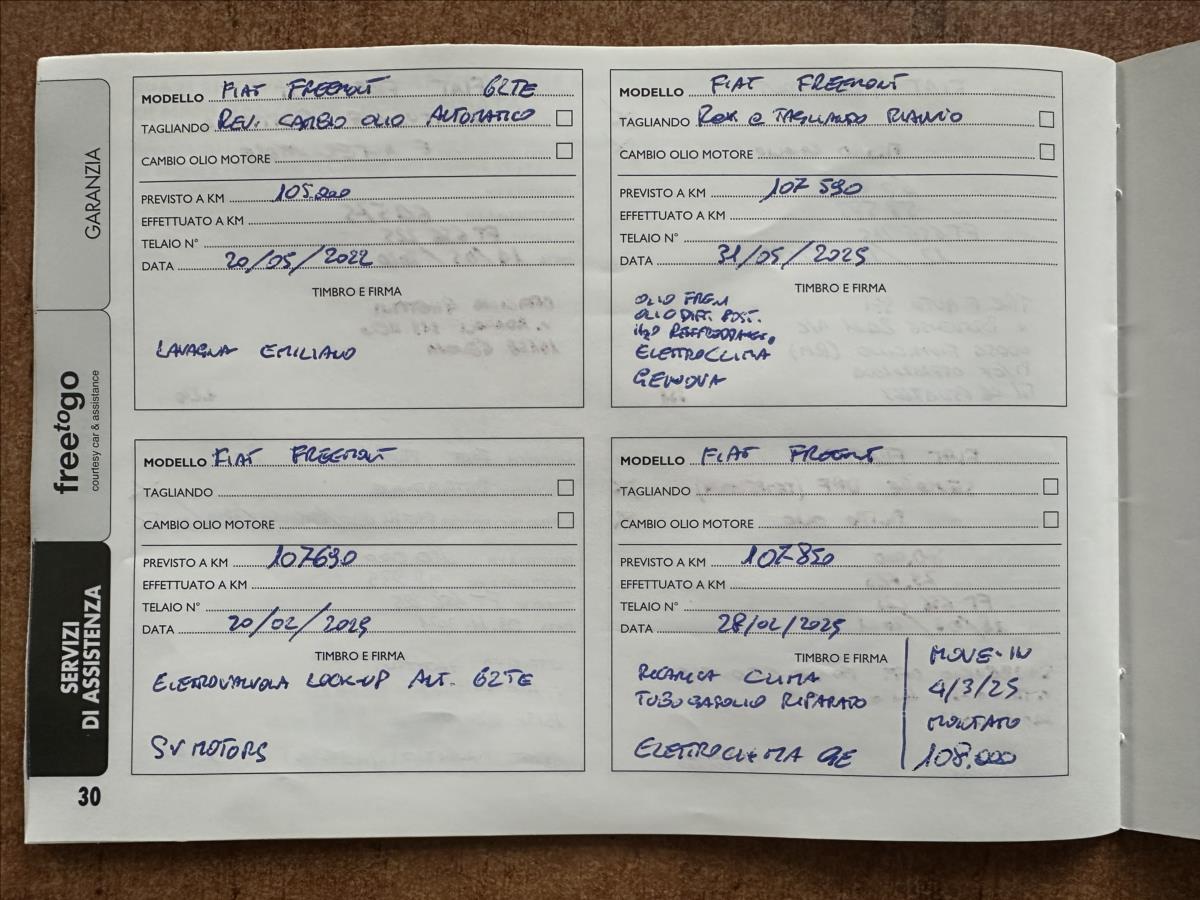 GARANZIA
freetogo
courtesy car & assistance
SERVIZI
DI ASSISTENZA
30
MODELLO FIAT FREEMONT 62TE
TAGLIANDO REV. CAMBIO OLIO AUTOMATICO
CAMBIO OLIO MOTORE
PREVISTO A KM 105.000
EFFETTUATO A KM
TELAIO N°
DATA 20/05/2022
TIMBRO E FIRMA
LAVAGNA EMILIANO
MODELLO FIAT FREEMONT
TAGLIANDO TAGLIANDO
CAMBIO OLIO MOTORE
PREVISTO A KM 107590
EFFETTUATO A KM
TELAIO N°
DATA 31/01/2025
TIMBRO E FIRMA
OLIO FRENI
OLIO DIFF. POST.
ELETTROCLIMA
GENOVA
MODELLO FIAT FREEMONT
TAGLIANDO
CAMBIO OLIO MOTORE
PREVISTO A KM 107690
EFFETTUATO A KM
TELAIO N°
DATA 20/02/2025
TIMBRO E FIRMA
ELETTROVALVOLA LOCK-UP AUT. 62TE
SV MOTORS
MODELLO FIAT FREEMONT
TAGLIANDO
CAMBIO OLIO MOTORE
PREVISTO A KM 107850
EFFETTUATO A KM
TELAIO N°
DATA 28/02/2025
TIMBRO E FIRMA
RICARICA CLIMA
TUBO GASOLIO RIPARATO
ELETTROCLIMA GE
MOVE-IN
4/3/25
MONTATO
108.000